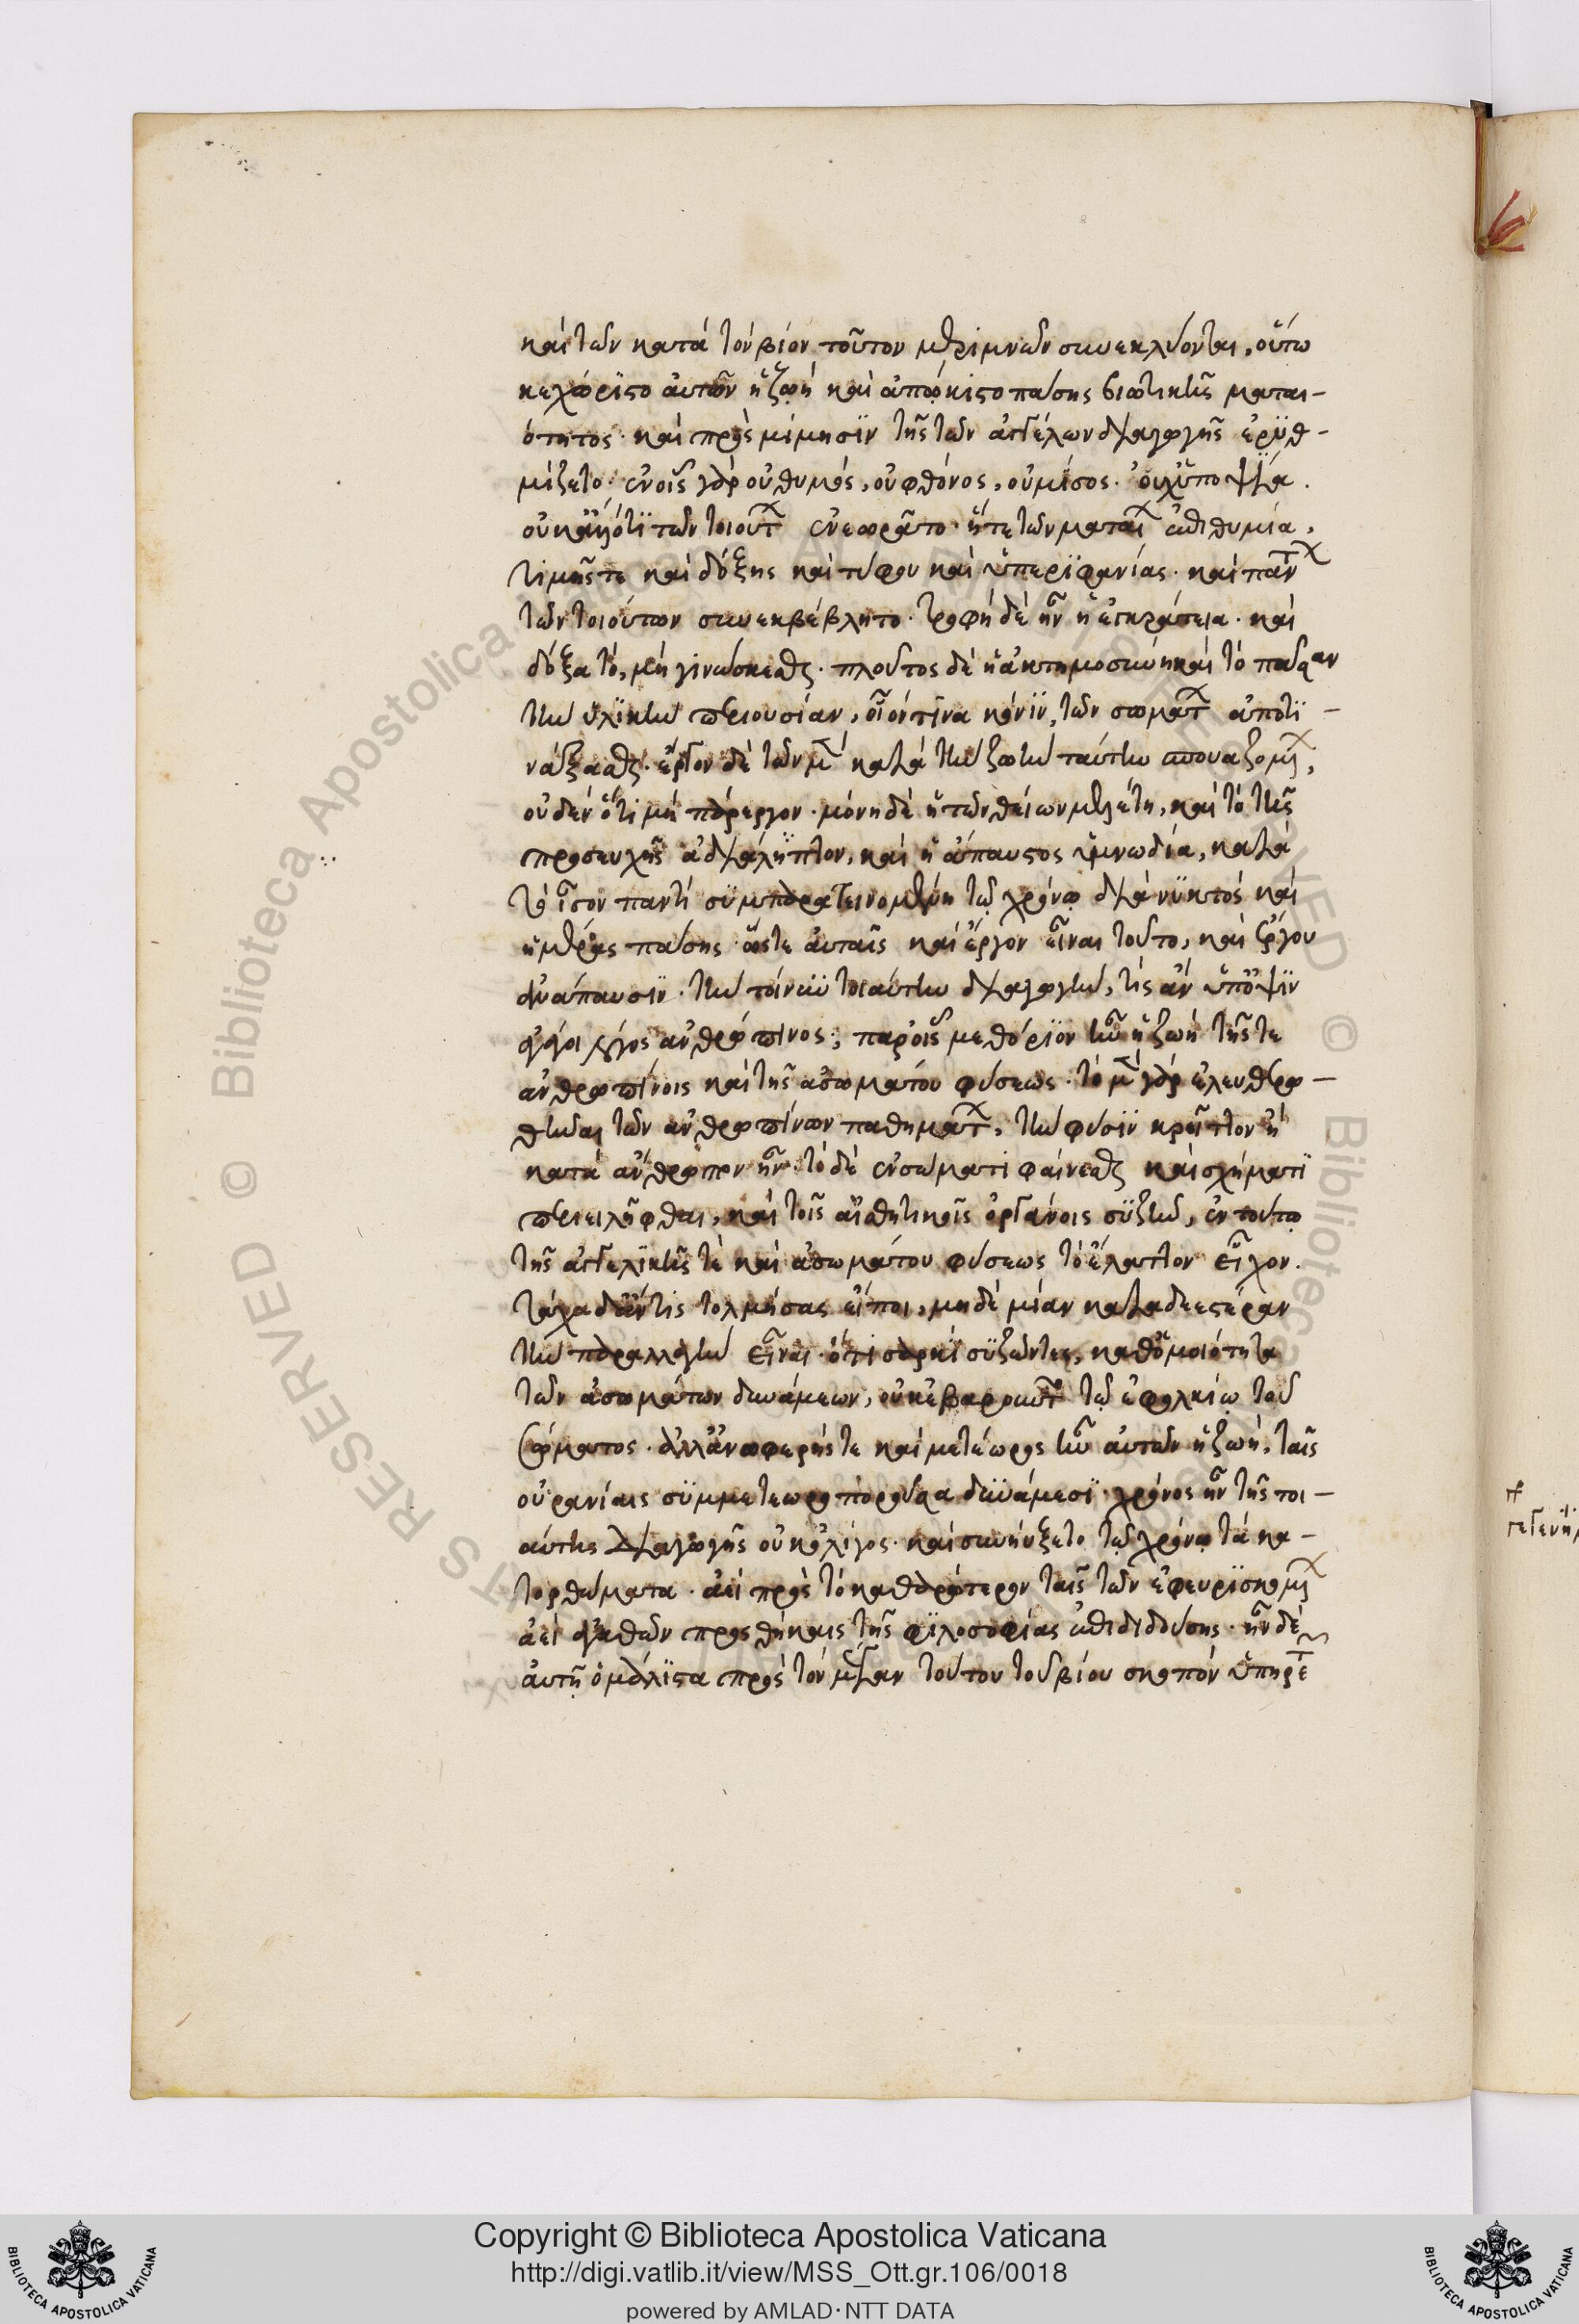 καὶ τῶν κατὰ τὸν βίον τοῦτον μεριμνῶν συνεκλύονται, οὕτω
κεχώριστο αὐτῶν ἡ ζωὴ καὶ ἀπώκιστο πάσης βιωτικῆς μαται-
ότητος· καὶ πρὸς μίμησϊν τῆς τῶν ἀγγέλων διαγωγῆς ἐρϋθ-
μίζετο· ἐν οἷς γὰρ οὐ θυμός, οὐ φθόνος, οὐ μῖσος· οὐχ ὑποψία.
οὐκ ἄλλό τϊ τῶν τοιούτ ἐνεωρᾶτο· ἥ τε τῶν ματαί ἐπιθυμία,
τιμῆς τε καὶ δόξης καὶ τύφου καὶ ὑπερϊφανίας· καὶ πάντ
τῶν τοιούτων συνεκβέβλητο· τροφὴ δὲ ἦν ἡ ἐγκράτεια· καὶ
δόξα τό, μὴ γινώσκεσθαι· πλοῦτος δὲ ἡ ἀκτημοσύνη καὶ τὸ πᾶσαν
τὴν ὑλϊκὴν περιουσίαν, οἷόν τϊνα κόνϊν, τῶν σωμάτ ἀποτϊ-
νάξασθαι· ἔργον δὲ τῶν μ κατὰ τὴν ζωὴν ταύτην σπουαζομ,
οὐδὲν ὅτι μὴ πάρεργον· μόνη δὲ ἡ τῶν θείων μελέτη, καὶ τὸ τῆς
προσευχῆς ἀδιάλϋπτον, καὶ ἡ ἄπαυστος ὑμνωδία, κατὰ
τὸ ἶσον παντὶ σϋμπαρατεινομένη τῷ χρόνῳ διὰ νϋκτὸς καὶ
ἡμέρας πάσης· ὥστε αὐταῖς καὶ ἔργον εἶναι τοῦτο, καὶ ἔργου
ἀνάπαυσϊν· τὴν τοίνϋν τοιαύτην διαγωγὴν, τίς ἂν ὑπ' ὄψϊν
ἀγάγοι λόγος ἀνθρώπινος; παρ' οἷς μεθόρϊον ἦν ἡ ζωὴ τῆς τε
ἀνθρωπίνοις καὶ τῆς ἀσωμάτου φύσεως· τὸ μ γὰρ ἐλευθερω-
θῆναι τῶν ἀνθρωπίνων παθημάτ, τὴν φύσϊν κρεῖττον ἢ
κατὰ ἄνθρωπον ἦν· τὸ δὲ ἐν σώματι φαίνεσθαι καὶ σχήματϊ
περιειλῆφθαι, καὶ τοῖς αἰσθητικοῖς ὀργάνοις σϋζῆν, ἐν τούτῳ
τῆς ἀγγελϊκῆς τὲ καὶ ἀσωμάτου φύσεως τὸ ἔλαττον εἶχον.
τάχα δ' ἄν τις τολμήσας εἴποι, μηδὲ μίαν καταδεεστέραν
τὴν παραλλαγὴν εἶναι· ὅτι σαρκϊ σϋζῶντες, καθ' ὁμοιότητα
τῶν ἀσωμάτων δυνάμεων, οὐκ ἐβαροῦντ τῷ ἐφολκίῳ τοῦ
σώματος· ἀλλ' ἀνωφερής τε καὶ μετέωρος ἦν αὐτῶν ἡ ζωή, ταῖς
οὐρανίαις σϋμμετεωροποροῦσα δϋνάμεσϊ· χρόνος ἦν τῆς τοι-
αύτης διαγωγῆς οὐκ ὀλίγος· καὶ συνηύξετο τῷ χρόνῳ τὰ κα-
τορθώματα· ἀεὶ πρὸς τὸ καθαρώτερον ταῖς τῶν ἐφευρϊσκομ
ἀεὶ ἀγαθῶν προσθήκαις τῆς φϊλοσοφίας ἐπιδιδούσης· ἦν δὲ
αὐτῇ ὁ μάλϊστα πρὸς τὸν μέγαν τοῦτον τοῦ βίου σκοπὸν ὑπηρετ